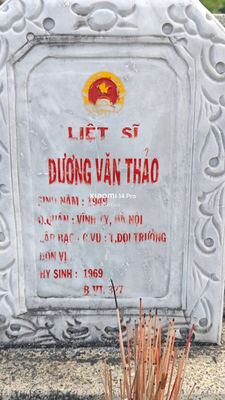 LIỆT SĨ
DƯƠNG VĂN THẢO
SINH NĂM : 1949
Q.QUÁN : VĨNH TUY, HÀ NỘI
CẤP BẬC - C.VỤ : T.ĐỘI TRƯỞNG
ĐƠN VỊ
HY SINH : 1969
B VI 327
XIAOMI 14 Pro